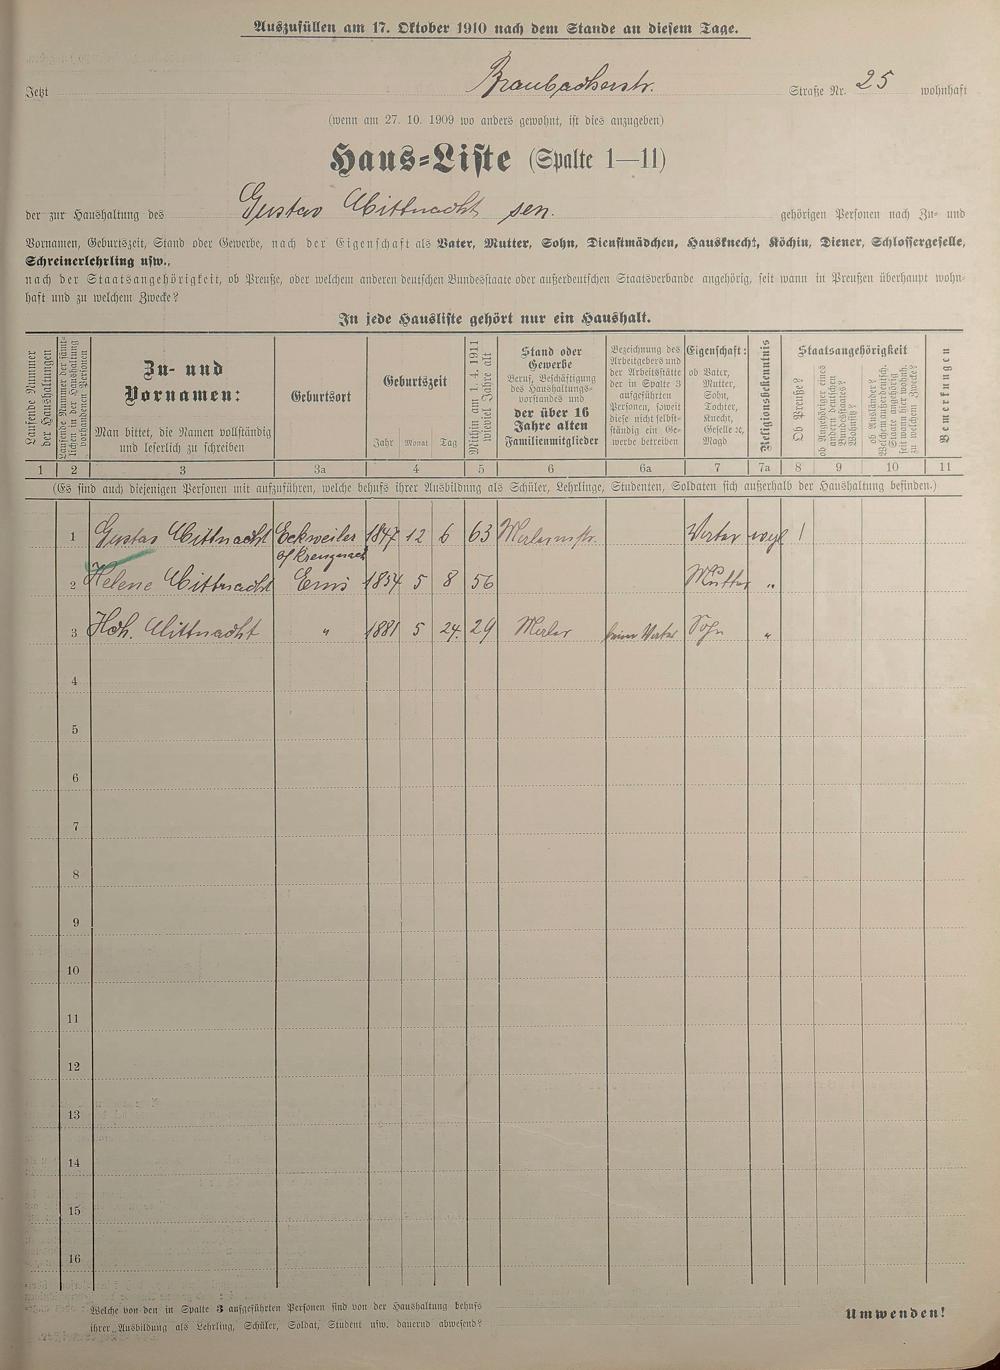 Auszufüllen am 17. Oktober 1910 nach dem Stande an diesem Tage.
Jetzt Braubacherstr. Straße Nr. 25 wohnhaft
(wenn am 27. 10. 1909 wo anders gewohnt, ist dies anzugeben)
Haus-Liste (Spalte 1—11)
der zur Haushaltung des Gustav Mittnacht sen. gehörigen Personen nach Zu- und
Vornamen, Geburtszeit, Stand oder Gewerbe, nach der Eigenschaft als Vater, Mutter, Sohn, Dienstmädchen, Hausknecht, Köchin, Diener, Schlossergeselle,
Schreinerlehrling usw.,
nach der Staatsangehörigkeit, ob Preuße, oder welchem anderen deutschen Bundesstaate oder außerdeutschen Staatsverbande angehörig, seit wann in Preußen überhaupt wohn-
haft und zu welchem Zwecke?
In jede Hausliste gehört nur ein Haushalt.
Laufende Nummer
der Haushaltungen
Laufende Nummer der sämt-
lichen in der Haushaltung
vorhandenen Personen
Zu- und
Vornamen:
Man bittet, die Namen vollständig
und leserlich zu schreiben
Geburtsort
Geburtszeit
Jahr Monat Tag
Mithin am 1. 4. 1911
wieviel Jahre alt
Stand oder
Gewerbe
Beruf, Beschäftigung
des Haushaltungs-
vorstandes und
der über 16
Jahre alten
Familienmitglieder
Bezeichnung des
Arbeitgebers und
der Arbeitsstätte
der in Spalte 3
aufgeführten
Personen, soweit
diese nicht selbst-
ständig ein Ge-
werbe betreiben
Eigenschaft:
ob Vater,
Mutter,
Sohn,
Tochter,
Knecht,
Geselle ꝛc,
Magd
Religionsbekenntnis
Staatsangehörigkeit
Ob Preuße?
ob Angehöriger eines
andern deutschen
Bundesstaates?
Wohnsitz?
ob Ausländer?
Welchem außerdeutsch.
Staate angehörig
seit wann hier wohnh.
zu welchem Zwecke?
Bemerkungen
1 2 3 3a 4 5 6 6a 7 7a 8 9 10 11
(Es sind auch diejenigen Personen mit aufzuführen, welche behufs ihrer Ausbildung als Schüler, Lehrlinge, Studenten, Soldaten sich außerhalb der Haushaltung befinden.)
1 Gustav Mittnacht Eckweiler 1847 12 6 63 Malermstr. Vater evgl
b/Kreuznach
2 Helene Mittnacht Ems 1854 5 8 56 Mutter "
3 Joh. Mittnacht " 1881 5 24. 29 Maler beim Vater Sohn "
4
5
6
7
8
9
10
11
12
13
14
15
16
Welche von den in Spalte 3 aufgeführten Personen sind von der Haushaltung behufs
ihrer Ausbildung als Lehrling, Schüler, Soldat, Student usw. dauernd abwesend?
Umwenden!